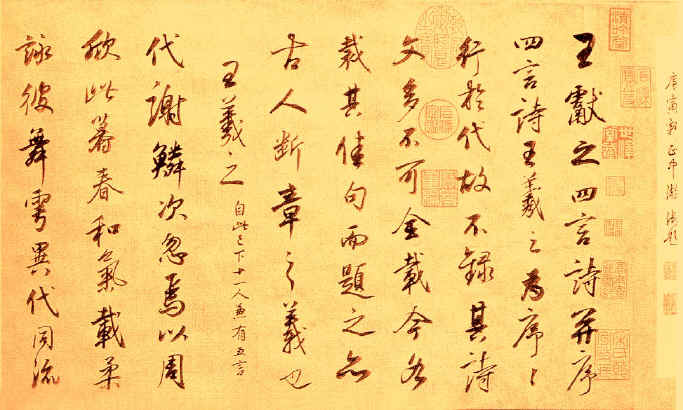 王獻之四言詩并序
四言詩王羲之為序〻
行於代故不錄其詩
文多不可全載今各
裁其佳句而題之亦
古人斷章之義也
王羲之
自此已下十一人並有五言
代謝鱗次忽焉以周
欣此暮春和氣載柔
詠彼舞雩異代同流